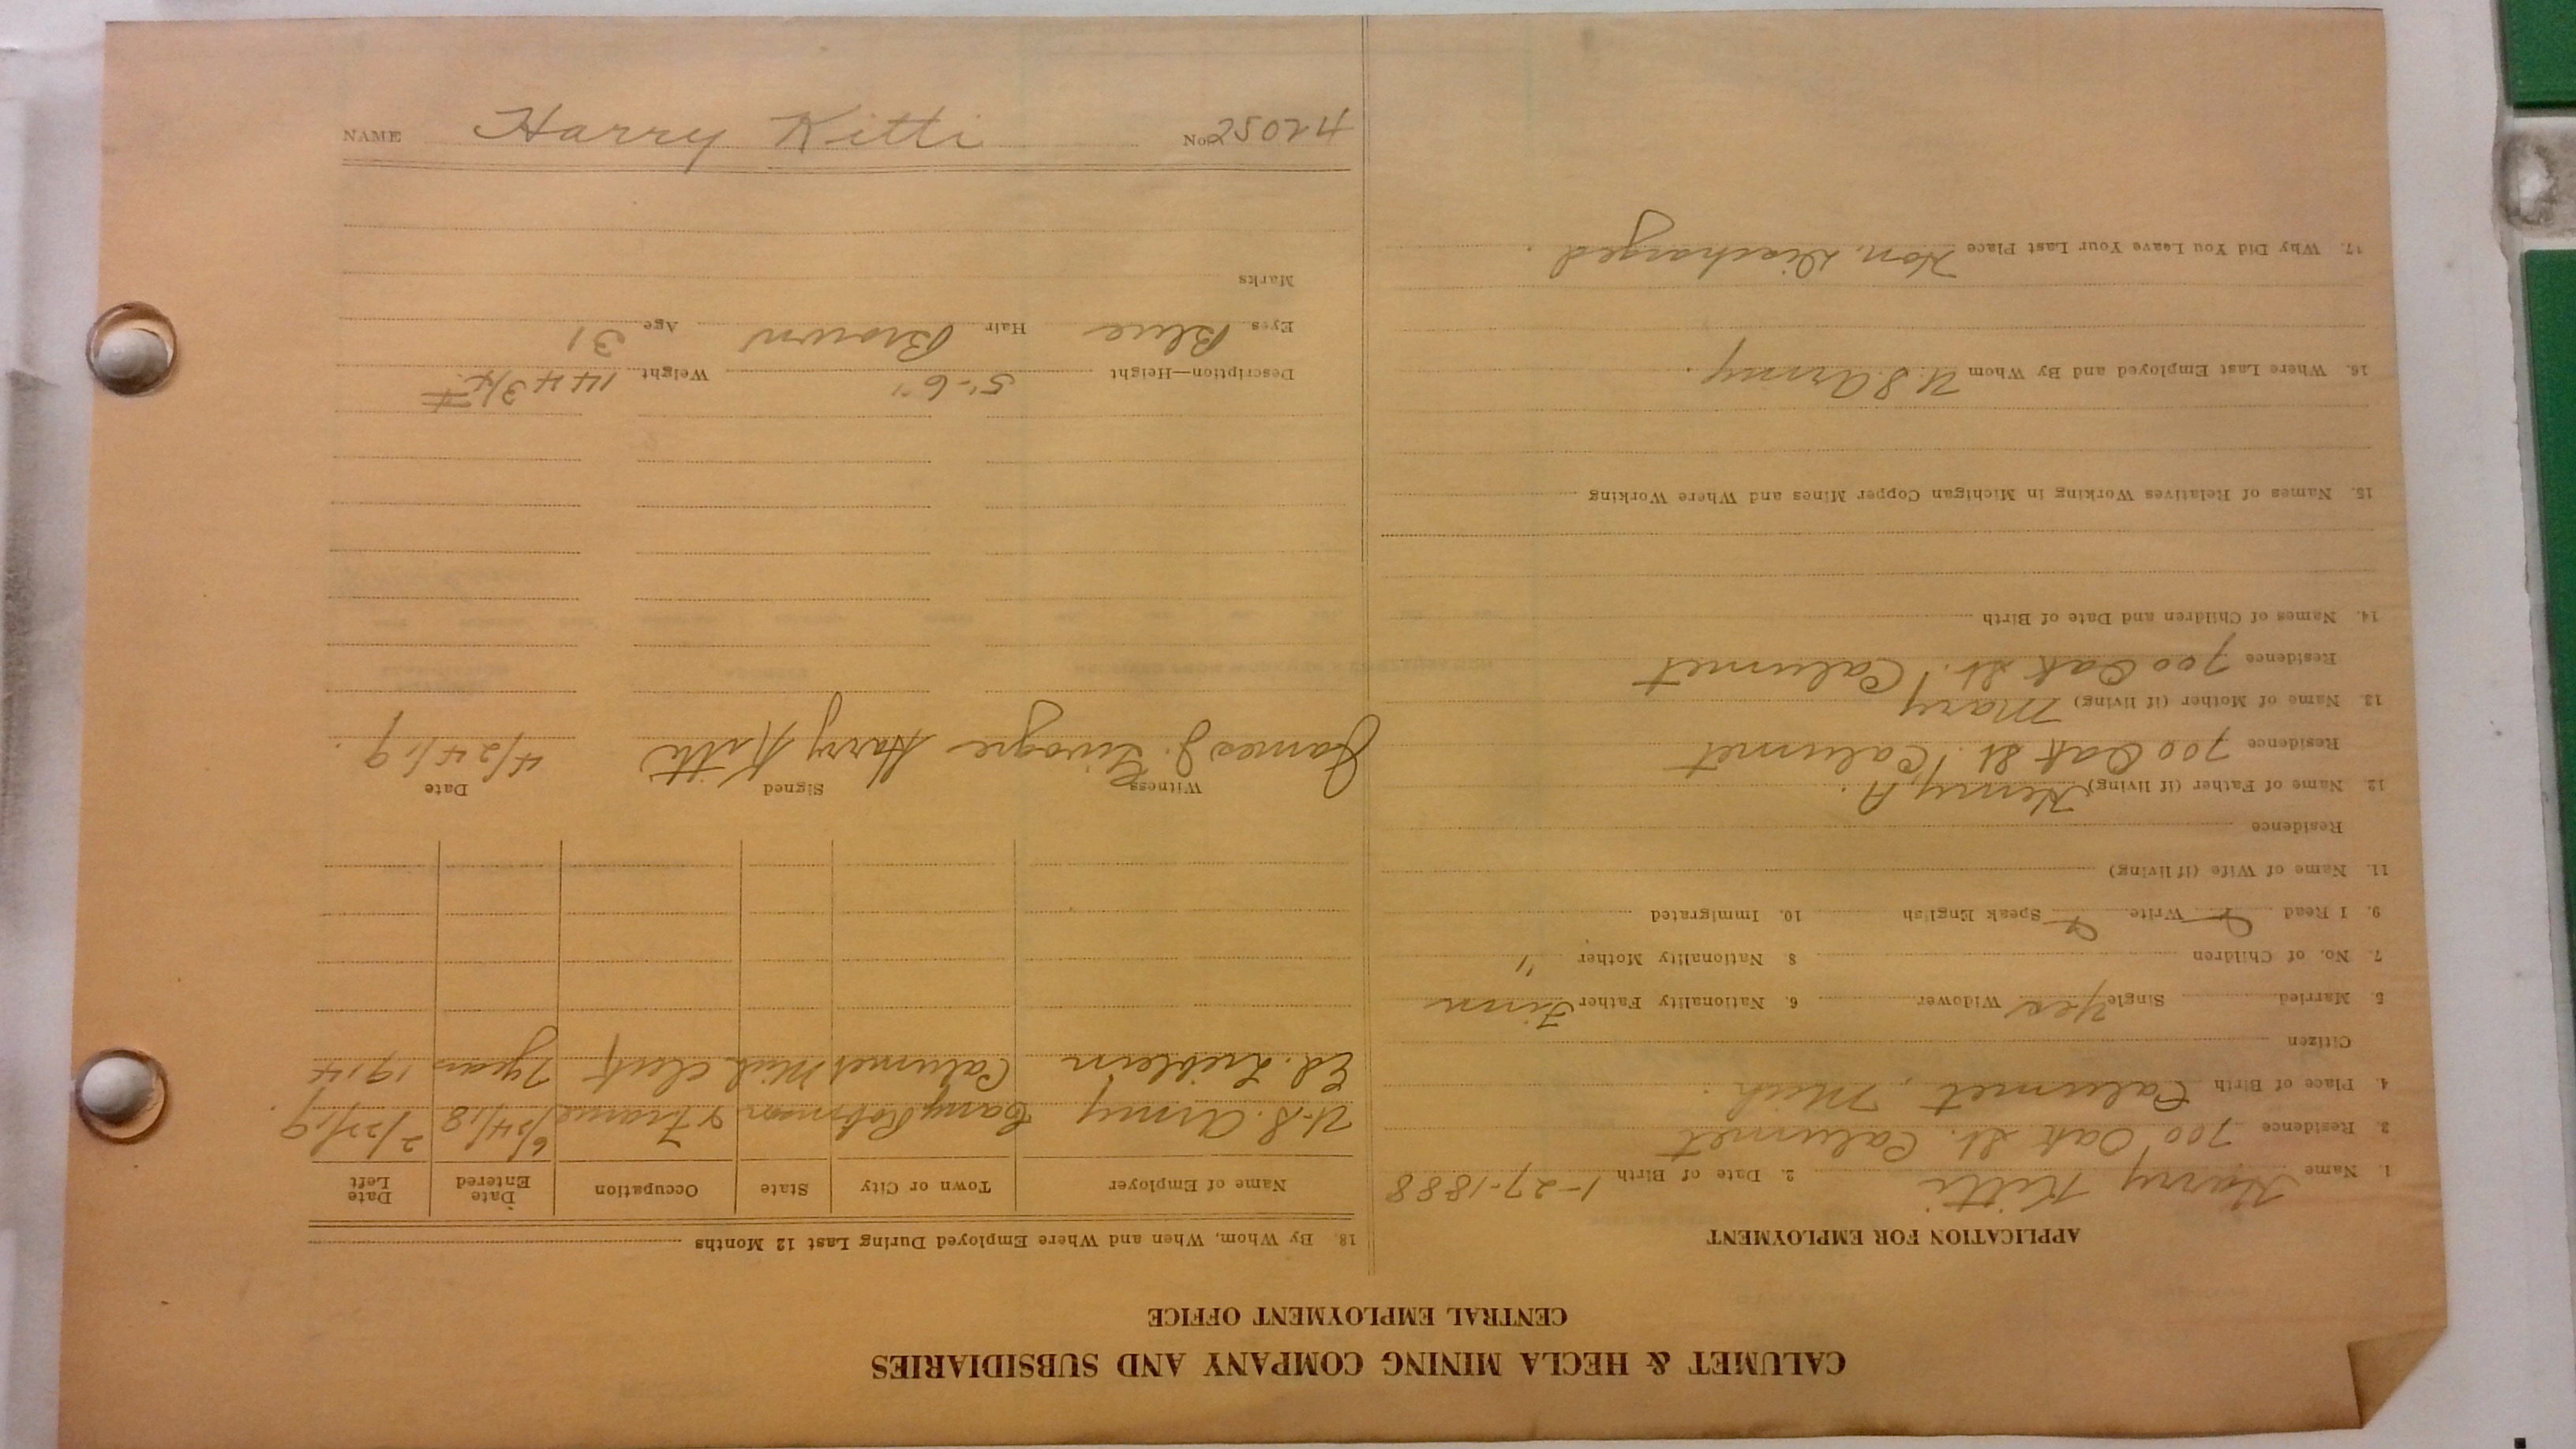 CALUMET & HECLA MINING COMPANY AND SUBSIDIARIES
CENTRAL EMPLOYMENT OFFICE
APPLICATION FOR EMPLOYMENT
1. Name Harry Kitti 2. Date of Birth 1-27-1888
3. Residence 700 Oak St. Calumet
4. Place of Birth Calumet, Mich.
Citizen
5. Married Single Yes Widower 6. Nationality Father Finn
7. No. of Children 8. Nationality Mother "
9. I Read Write Speak English 10. Immigrated
11. Name of Wife (if living)
Residence
12. Name of Father (if living) Henry A.
Residence 700 Oak St. Calumet
13. Name of Mother (if living) Mary
Residence 700 Oak St. Calumet
14. Names of Children and Date of Birth
15. Names of Relatives Working in Michigan Copper Mines and Where Working
16. Where Last Employed and By Whom U.S. Army.
17. Why Did You Leave Your Last Place Hon. Discharged.
18. By Whom, When and Where Employed During Last 12 Months
Name of Employer Town or City State Occupation Date Entered Date Left
U.S. Army Camp Robinson 6/24/18 2/27/19.
Ed. Lieblein Calumet Mich Clerk 7 years 1914
Witness Signed Date
James J. Harry Kitti 4/24/19.
Description—Height 5'-6" Weight 144 3/4 #
Eyes Blue Hair Brown Age 31
Marks
NAME Harry Kitti No. 25024